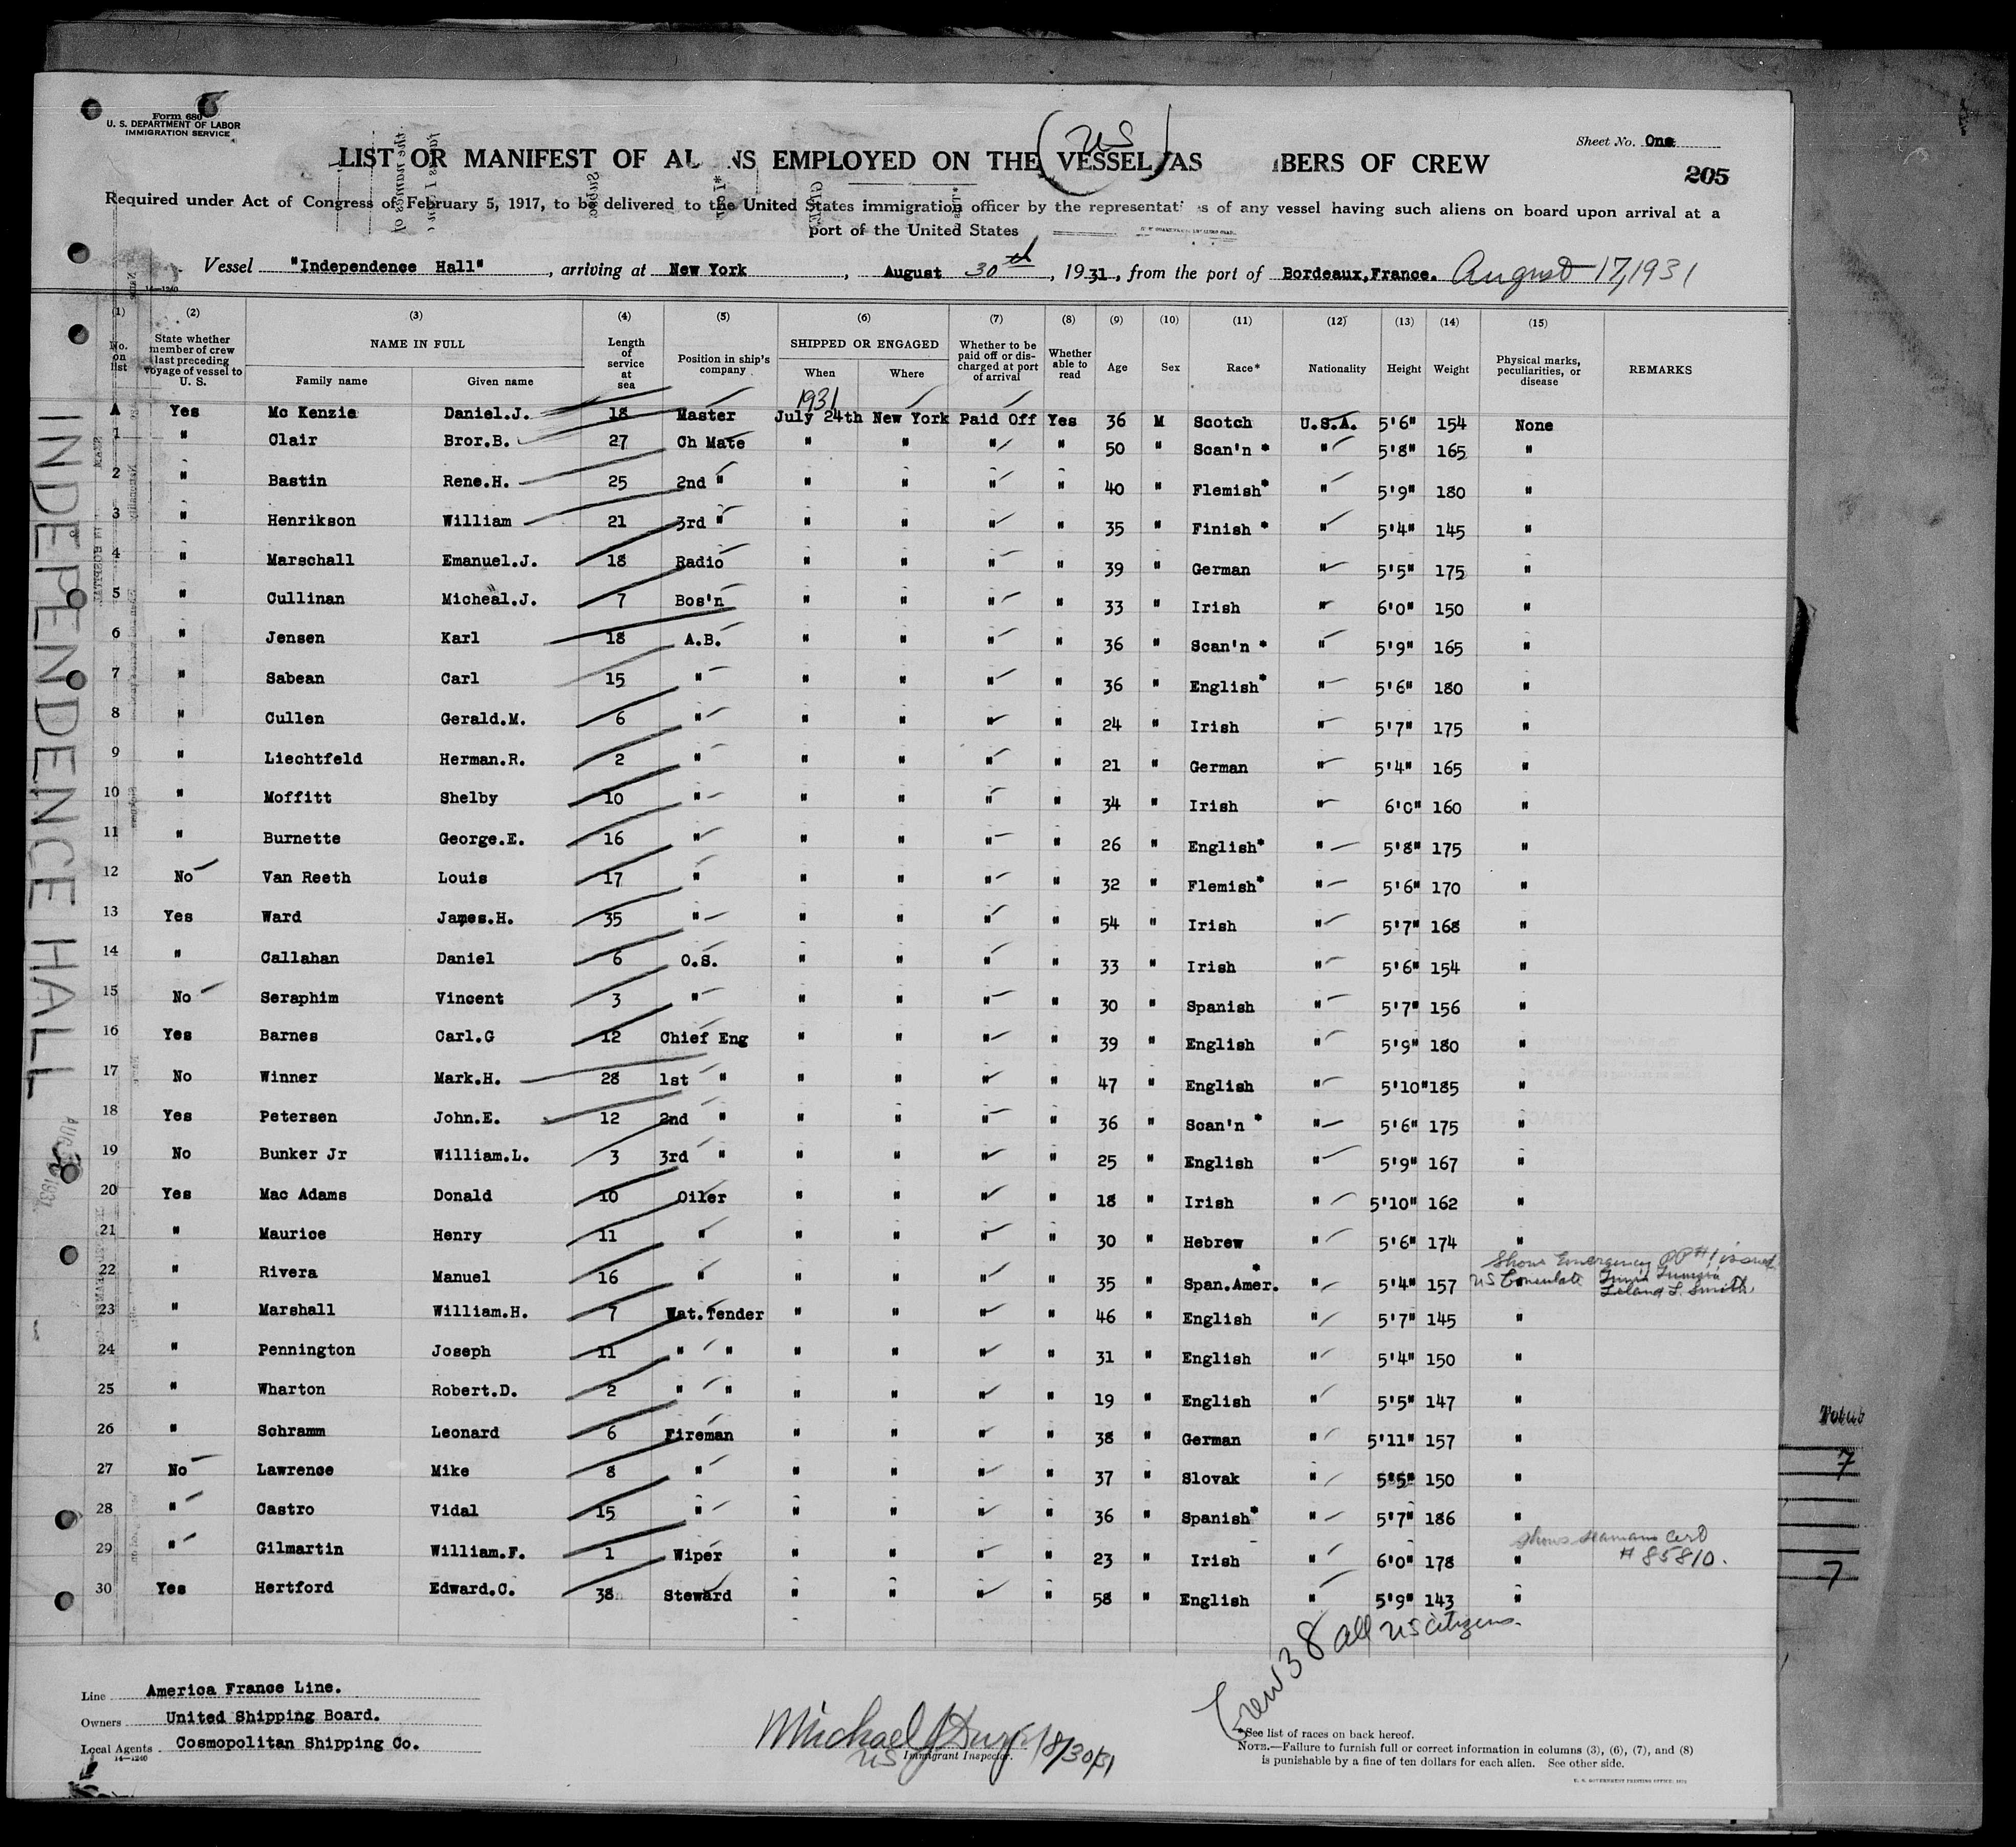 Form 680
U. S. DEPARTMENT OF LABOR
IMMIGRATION SERVICE
Sheet No. One
205
US
LIST OR MANIFEST OF AL NS EMPLOYED ON THE VESSEL AS BERS OF CREW
Required under Act of Congress of February 5, 1917, to be delivered to the United States immigration officer by the representati s of any vessel having such aliens on board upon arrival at a
port of the United States
Vessel "Independence Hall", arriving at New York, August 30th, 1931, from the port of Bordeaux,France. August 17,1931
14-1240
(1) (2) (3) (4) (5) (6) (7) (8) (9) (10) (11) (12) (13) (14) (15)
No. on list State whether member of crew last preceding voyage of vessel to U. S. NAME IN FULL Family name Given name Length of service at sea Position in ship's company SHIPPED OR ENGAGED When Where Whether to be paid off or discharged at port of arrival Whether able to read Age Sex Race* Nationality Height Weight Physical marks, peculiarities, or disease REMARKS
1931
A Yes Mc Kenzie Daniel.J. 18 Master July 24th New York Paid Off Yes 36 M Scotch U.S.A. 5'6" 154 None
1 " Clair Bror.B. 27 Ch Mate " " " " 50 " Scan'n * " 5'8" 165 "
2 " Bastin Rene.H. 25 2nd " " " " " 40 " Flemish* " 5'9" 180 "
3 " Henrikson William 21 3rd " " " " " 35 " Finish * " 5'4" 145 "
4 " Marschall Emanuel.J. 18 Radio " " " " 39 " German " 5'5" 175 "
5 " Cullinan Micheal.J. 7 Bos'n " " " " 33 " Irish " 6'0" 150 "
6 " Jensen Karl 18 A.B. " " " " 36 " Scan'n * " 5'9" 165 "
7 " Sabean Carl 15 " " " " " 36 " English* " 5'6" 180 "
8 " Cullen Gerald.M. 6 " " " " " 24 " Irish " 5'7" 175 "
9 " Liechtfeld Herman.R. 2 " " " " " 21 " German " 5'4" 165 "
10 " Moffitt Shelby 10 " " " " " 34 " Irish " 6'0" 160 "
11 " Burnette George.E. 16 " " " " " 26 " English* " 5'8" 175 "
12 No Van Reeth Louis 17 " " " " " 32 " Flemish* " 5'6" 170 "
13 Yes Ward James.H. 35 " " " " " 54 " Irish " 5'7" 168 "
14 " Callahan Daniel 6 O.S. " " " " 33 " Irish " 5'6" 154 "
15 No Seraphim Vincent 3 " " " " " 30 " Spanish " 5'7" 156 "
16 Yes Barnes Carl.G 12 Chief Eng " " " " 39 " English " 5'9" 180 "
17 No Winner Mark.H. 28 1st " " " " " 47 " English " 5'10" 185 "
18 Yes Petersen John.E. 12 2nd " " " " " 36 " Scan'n * " 5'6" 175 "
19 No Bunker Jr William.L. 3 3rd " " " " " 25 " English " 5'9" 167 "
20 Yes Mac Adams Donald 10 Oiler " " " " 18 " Irish " 5'10" 162 "
21 " Maurice Henry 11 " " " " " 30 " Hebrew " 5'6" 174 "
Shows Emergency PP#1 issued
22 " Rivera Manuel 16 " " " " " 35 " Span.Amer.* " 5'4" 157 " US Consulate Tunis Tunisia
Leland L. Smith
23 " Marshall William.H. 7 Wat.Tender " " " " 46 " English " 5'7" 145 "
24 " Pennington Joseph 11 " " " " " " 31 " English " 5'4" 150 "
25 " Wharton Robert.D. 2 " " " " " " 19 " English " 5'5" 147 "
26 " Schramm Leonard 6 Fireman " " " " 38 " German " 5'11" 157 "
27 No Lawrence Mike 8 " " " " " 37 " Slovak " 5'5" 150 "
28 " Castro Vidal 15 " " " " " 36 " Spanish* " 5'7" 186 "
shows seamans cert
29 " Gilmartin William.F. 1 Wiper " " " " 23 " Irish " 6'0" 178 " # 85810.
30 Yes Hertford Edward.C. 38 Steward " " " " 58 " English " 5'9" 143 "
INDEPENDENCE HALL
AUG 30 1931
Total
7
7
Crew 38 all US citizens.
Line America France Line.
Owners United Shipping Board.
Local Agents Cosmopolitan Shipping Co.
14-1240
Michael J 8/30/31
US Immigrant Inspector.
*See list of races on back hereof.
NOTE.—Failure to furnish full or correct information in columns (3), (6), (7), and (8)
is punishable by a fine of ten dollars for each alien. See other side.
U. S. GOVERNMENT PRINTING OFFICE